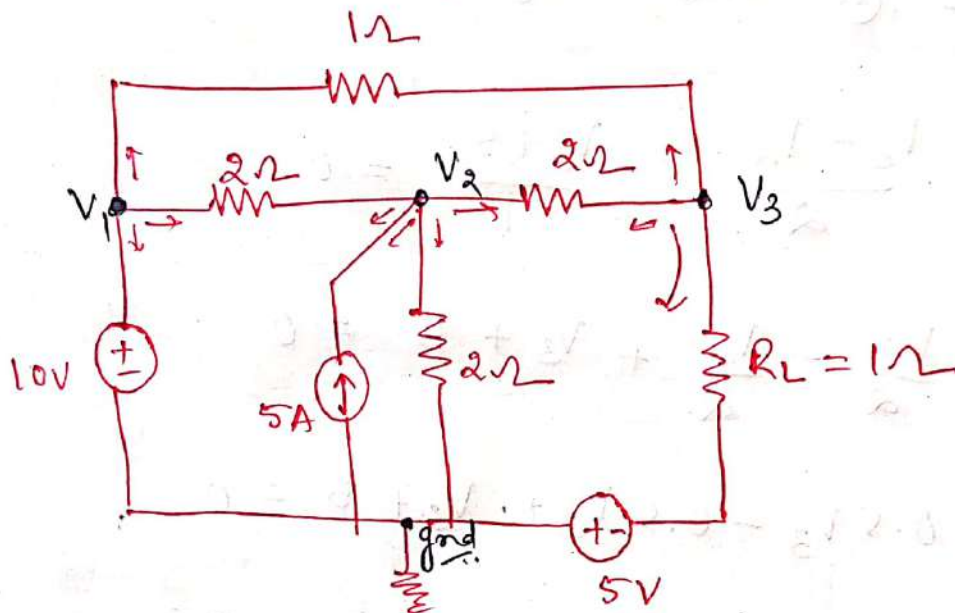 1Ω
2Ω
V2
2Ω
V1
V3
10V
+
-
5A
2Ω
RL = 1Ω
gnd
+ -
5V